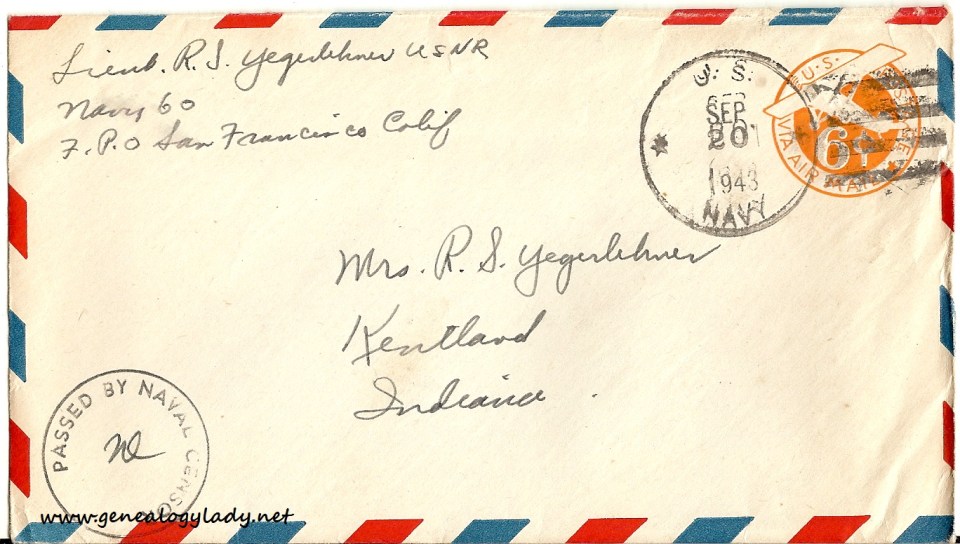 Lieut. R. S. Yegerlehner USNR
Navy 60
F.P.O San Francisco Calif
U. S.
SEP
20
1943
NAVY
U.S.
6¢
VIA AIR MAIL
Mrs. R. S. Yegerlehner
Kentland
Indiana
PASSED BY NAVAL CENSO
www.genealogylady.net